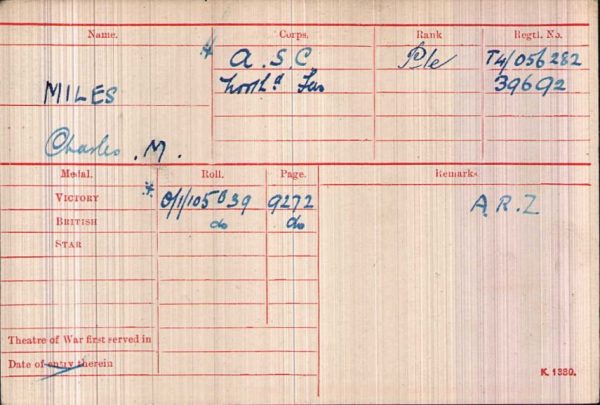 Name. Corps. Rank Regtl. No.
* A.S.C. Pte T4/056282
MILES North'd Fus 39692
Charles .M.
Medal. Roll. Page. Remarks
VICTORY * O/1/105 B 39 9272 A.R.Z
BRITISH do do
STAR
Theatre of War first served in
Date of entry therein
K. 1380.